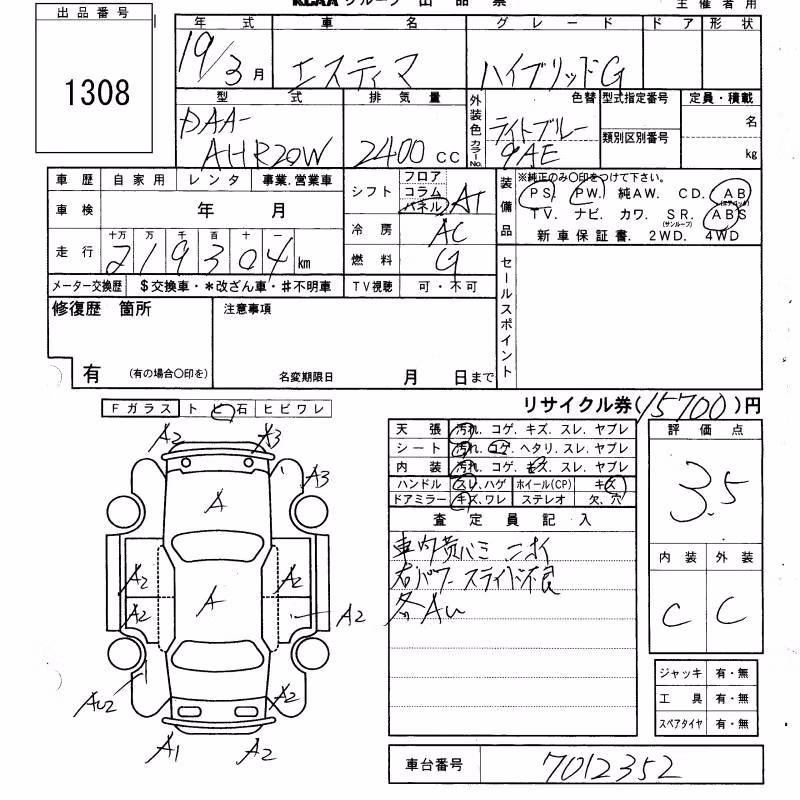 KCAA グループ 出 品 票
主 催 者 用
出 品 番 号
1308
年 式 車 名 グ レ ー ド ド ア 形 状
19/3 月 エスティマ ハイブリッドG
型 式 排 気 量 外装色 カラーNo. 色替 型式指定番号 定員・積載
DAA-
AHR20W 2400 cc ライトブルー
9AE 類別区別番号 名
kg
車 歴 自 家 用 レ ン タ 事業.営業車
車 検 年 月
走 行 十万 万 千 百 十 一
219304 km
メーター交換歴 $交換車・*改ざん車・#不明車
シフト フロア
コラム
パネル AT
冷 房 AC
燃 料 G
TV視聴 可・不可
装備品 ※純正のみ〇印をつけて下さい。
PS. PW. 純AW. CD. AB
(エアバック)
TV. ナビ. カワ. SR. ABS
(サンルーフ)
新車保証書. 2WD. 4WD
修復歴 箇所
有 (有の場合〇印を)
注意事項
名変期限日 月 日まで
セールスポイント
リサイクル券(15700)円
Fガラス ト ビ 石 ヒビワレ
A2 A3
A3
A
A2 A2
A
A2 A2
AU2 A2
A1 A2
天 張 汚れ. コゲ. キズ. スレ. ヤブレ
シート 汚れ. コゲ. ヘタリ. スレ. ヤブレ
内 装 汚れ. コゲ. キズ. スレ. ヤブレ
ハンドル スレ.ハゲ ホイール(CP) キズ
ドアミラー キズ.ワレ ステレオ 欠. 穴
査 定 員 記 入
車内黄バミ ニオイ
右パワースライド不良
各AU
評 価 点
3.5
内 装 外 装
C C
ジャッキ 有・無
工 具 有・無
スペアタイヤ 有・無
車台番号 7012352